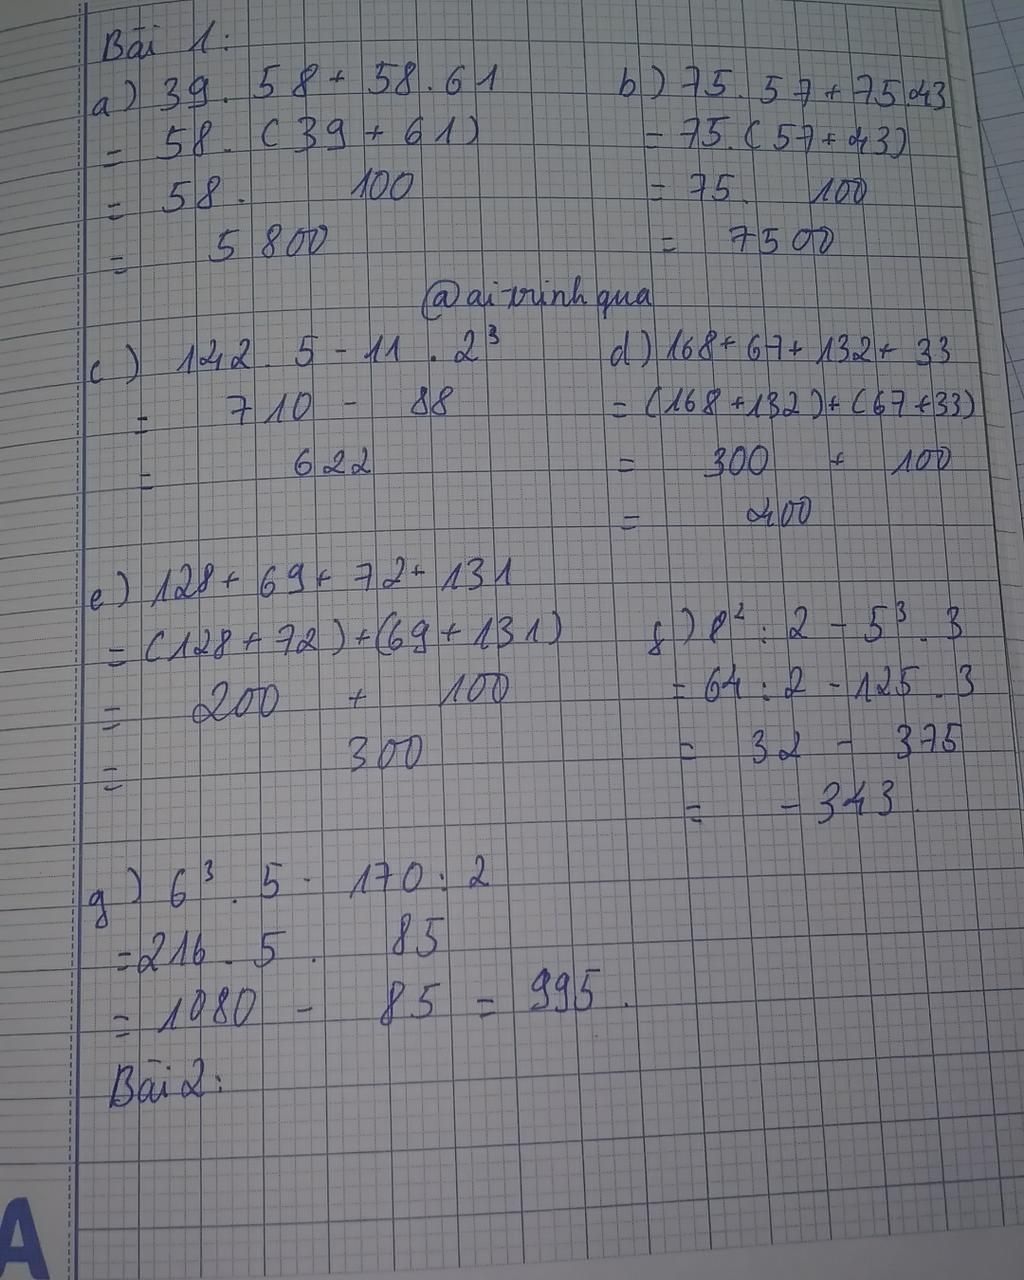 Bài 1:
a) 39. 58 + 58.61
= 58. (39 + 61)
= 58. 100
= 5800
b) 75.57 + 75.43
= 75.(57+43)
= 75. 100
= 7500
@ai-trinh qua
c) 142. 5 - 11 . 2³
= 710 - 88
= 622
d) 168 + 67 + 132 + 33
= (168 + 132) + (67 + 33)
= 300 + 100
= 400
e) 128 + 69 + 72 + 131
= (128 + 72) + (69 + 131)
= 200 + 100
= 300
f) 8² : 2 - 5³ . 3
= 64 : 2 - 125 . 3
= 32 - 375
= - 343
g) 6³ . 5 - 170 : 2
= 216 . 5 - 85
= 1080 - 85 = 995.
Bài 2:
A